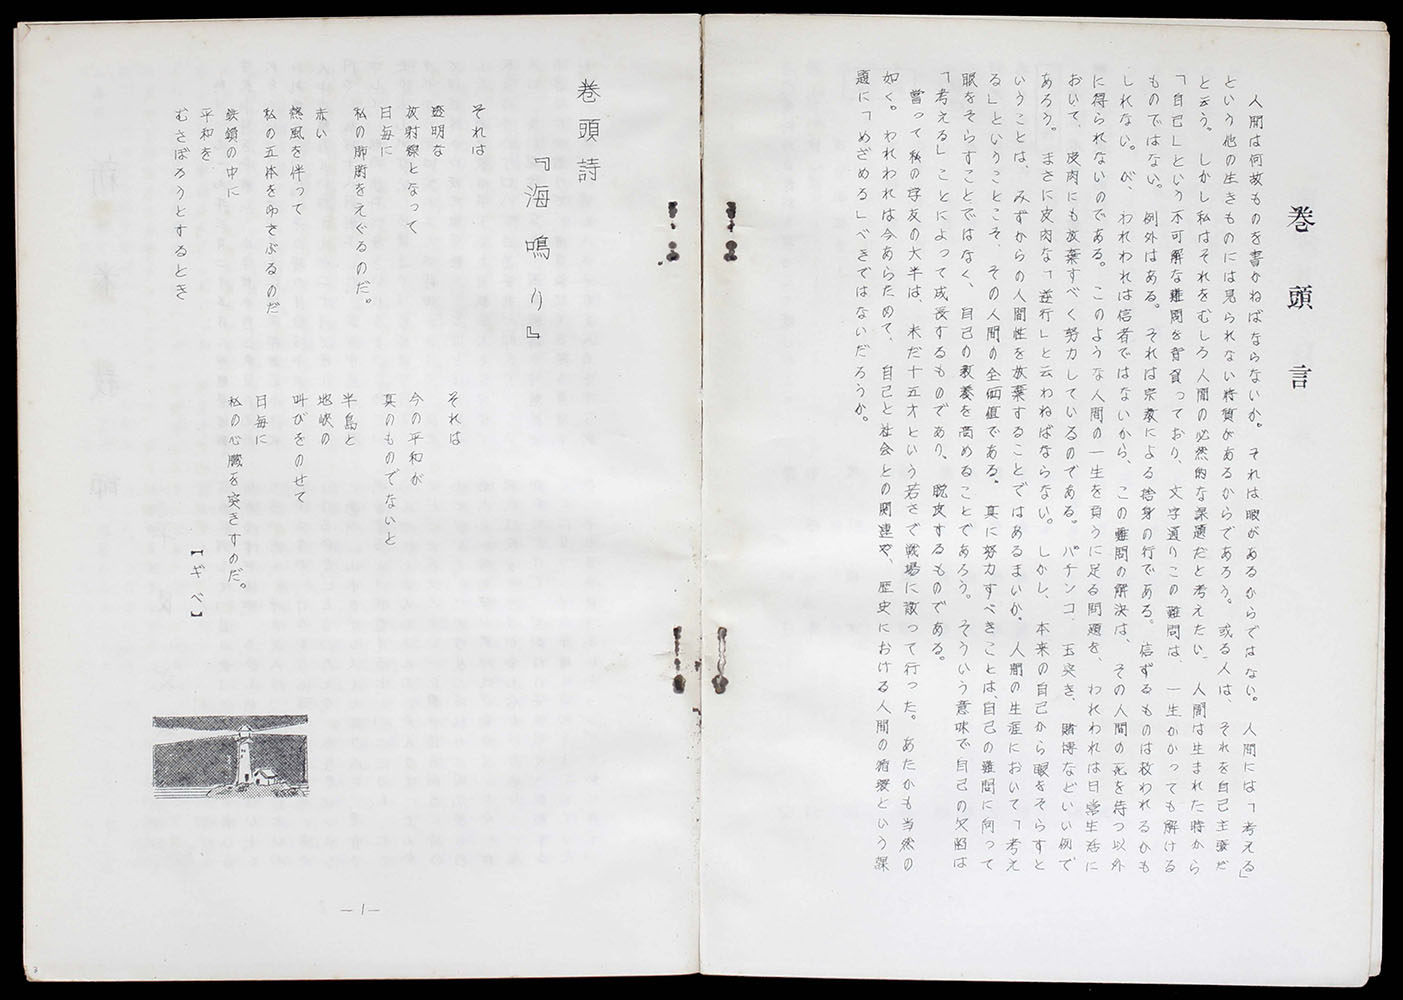 巻頭言
人間は何故ものを書かねばならないか。それは暇があるからではない。人間には「考える」
という他の生きものには見られない特質があるからであろう。或る人は、それを自己主張だ
と云う。しかし私はそれをむしろ人間の必然的な課題だと考えたい、人間は生まれた時から
「自己」という不可解な難問を背負っており、文字通りこの難問は、一生かかっても解ける
ものではない。例外はある。それは宗教による捨身の行である。信ずるものは救われるかも
しれない。が、われわれは信者ではないから、この難問の解決は、その人間の死を待つ以外
に得られないのである。このような人間の一生を負うに足る問題を、われわれは日常生活に
おいて、皮肉にも放棄すべく努力しているのである。パチンコ、玉突き、賭博などいい例で
あろう。まさに皮肉な「逆行」と云わねばならない。しかし、本来の自己から眼をそらすと
いうことは、みずからの人間性を放棄することではあるまいか。人間の生涯において「考え
る」ということこそ、その人間の全価値である。真に努力すべきことは、自己の難問に向って
眼をそらすことではなく、自己の教養を高めることであろう。そういう意味で自己の欠陥は
「考える」ことによって成長するものであり、脱皮するものである。
嘗って私の学友の大半は、未だ十五才という若さで戦場に散って行った。あたかも当然の
如く。われわれは今あらためて、自己と社会との関連や、歴史における人間の循環という課
題に「めざめる」べきではないだろうか。
巻頭詩
『海鳴り』
それは
透明な
放射線となって
日毎に
私の肺腑をえぐるのだ。
赤い
熱風を伴って
私の五体をゆさぶるのだ
鉄鎖の中に
平和を
むさぼろうとするとき
それは
今の平和が
真のものでないと
半島と
地峡の
叫びをのせて
日毎に
私の心臓を突きすのだ。
【ギベ】
—1—